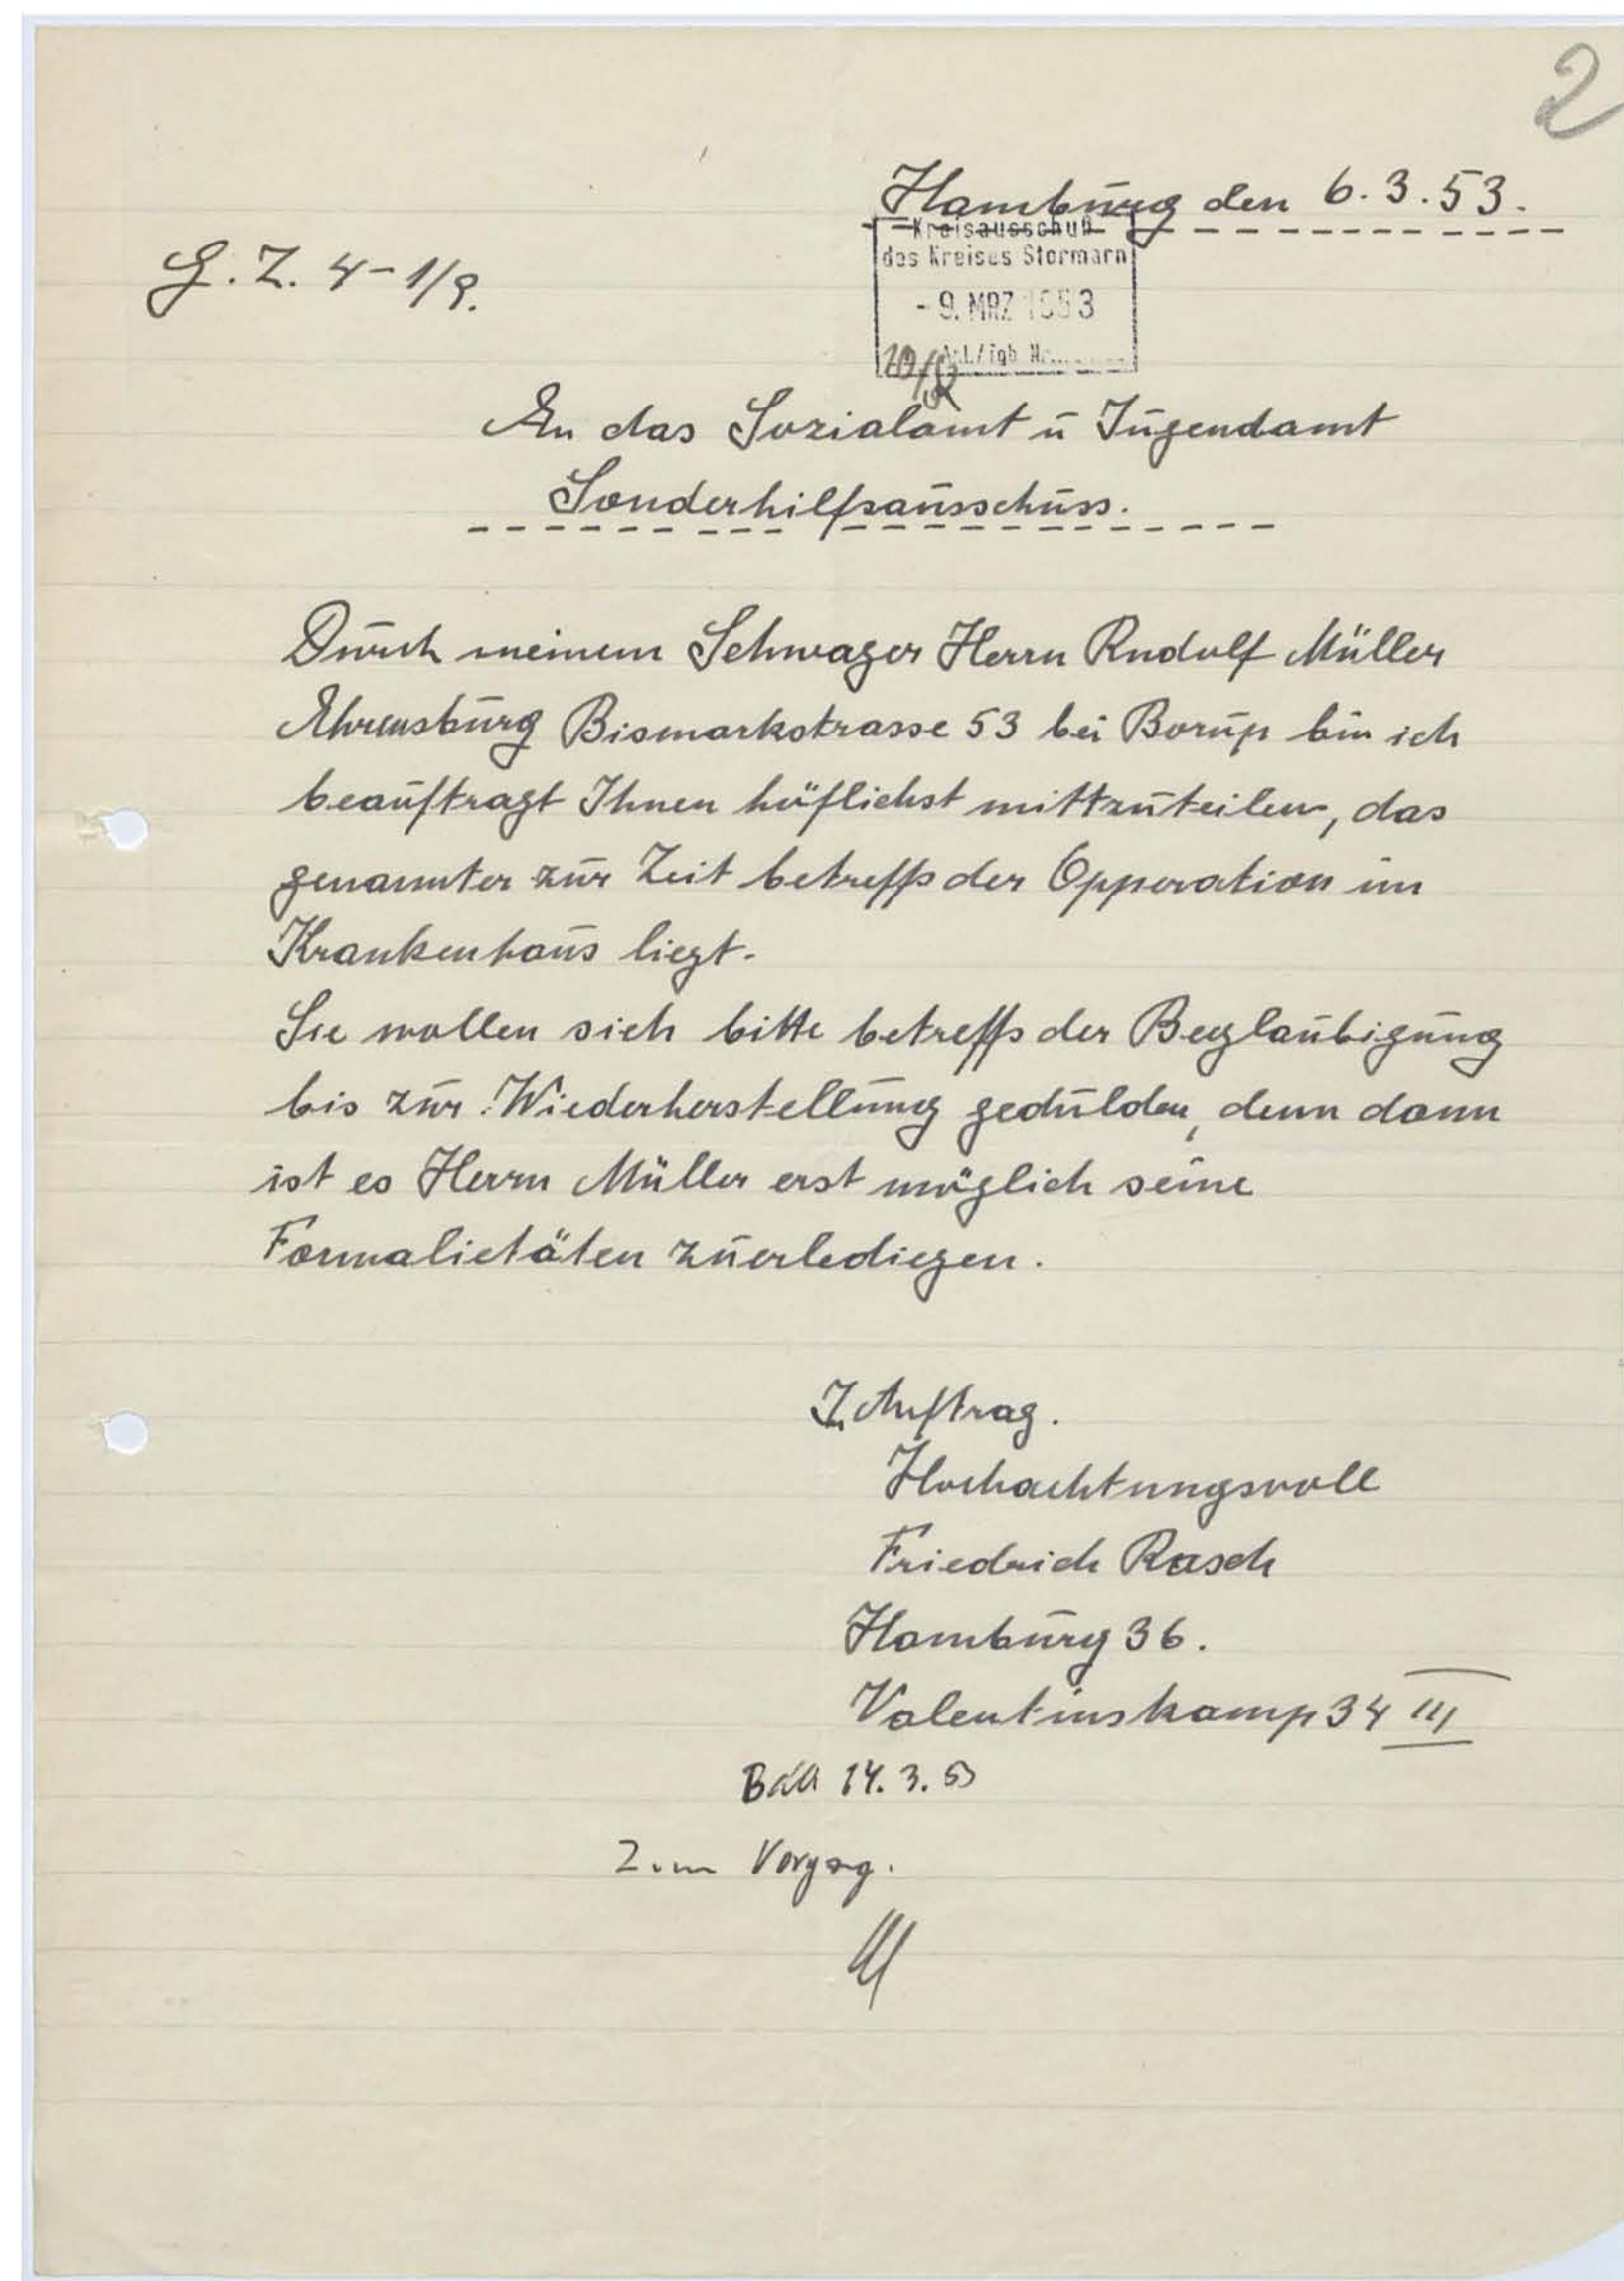 2
Hamburg den 6.3.53.
Kreisausschuß
des Kreises Stormarn
- 9. MRZ 1953
G.Z. 4-1/9.
An das Sozialamt u Jugendamt
Sonderhilfsausschuss.
Durch meinem Schwager Herrn Rudolf Müller
Ahrensburg Bismarkstrasse 53 bei Borup bin ich
beauftragt Ihnen höflichst mittzuteilen, das
genannter zur Zeit betreffs der Opperation im
Krankenhaus liegt.
Sie wollen sich bitte betreffs der Beglaubigung
bis zur Wiederherstellung gedulden, denn dann
ist es Herrn Müller erst möglich seine
Formalietäten zuerledigen.
I. Auftrag.
Hochachtungsvoll
Friedrich Rasch
Hamburg 36.
Valentinskamp 34 III
14.3.53
Zum Vorgang.